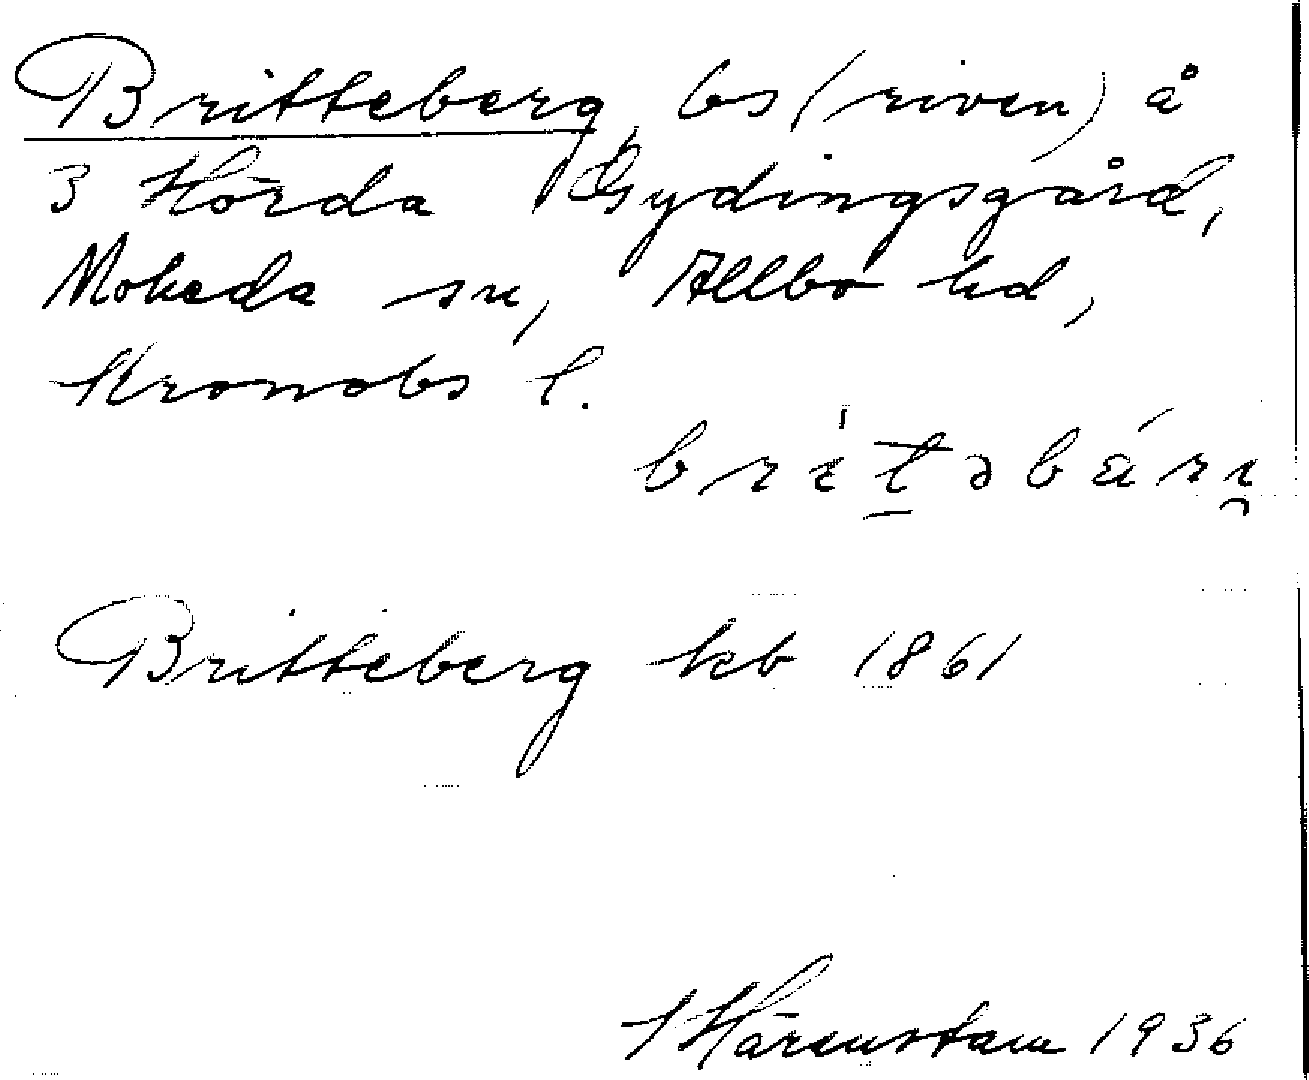 Britteberg, bs (riven) å
3 Hörda Gydingsgård,
Moheda sn, Allbo hd,
Kronobs l.
Britteberg kb 1861
Härenstam 1936